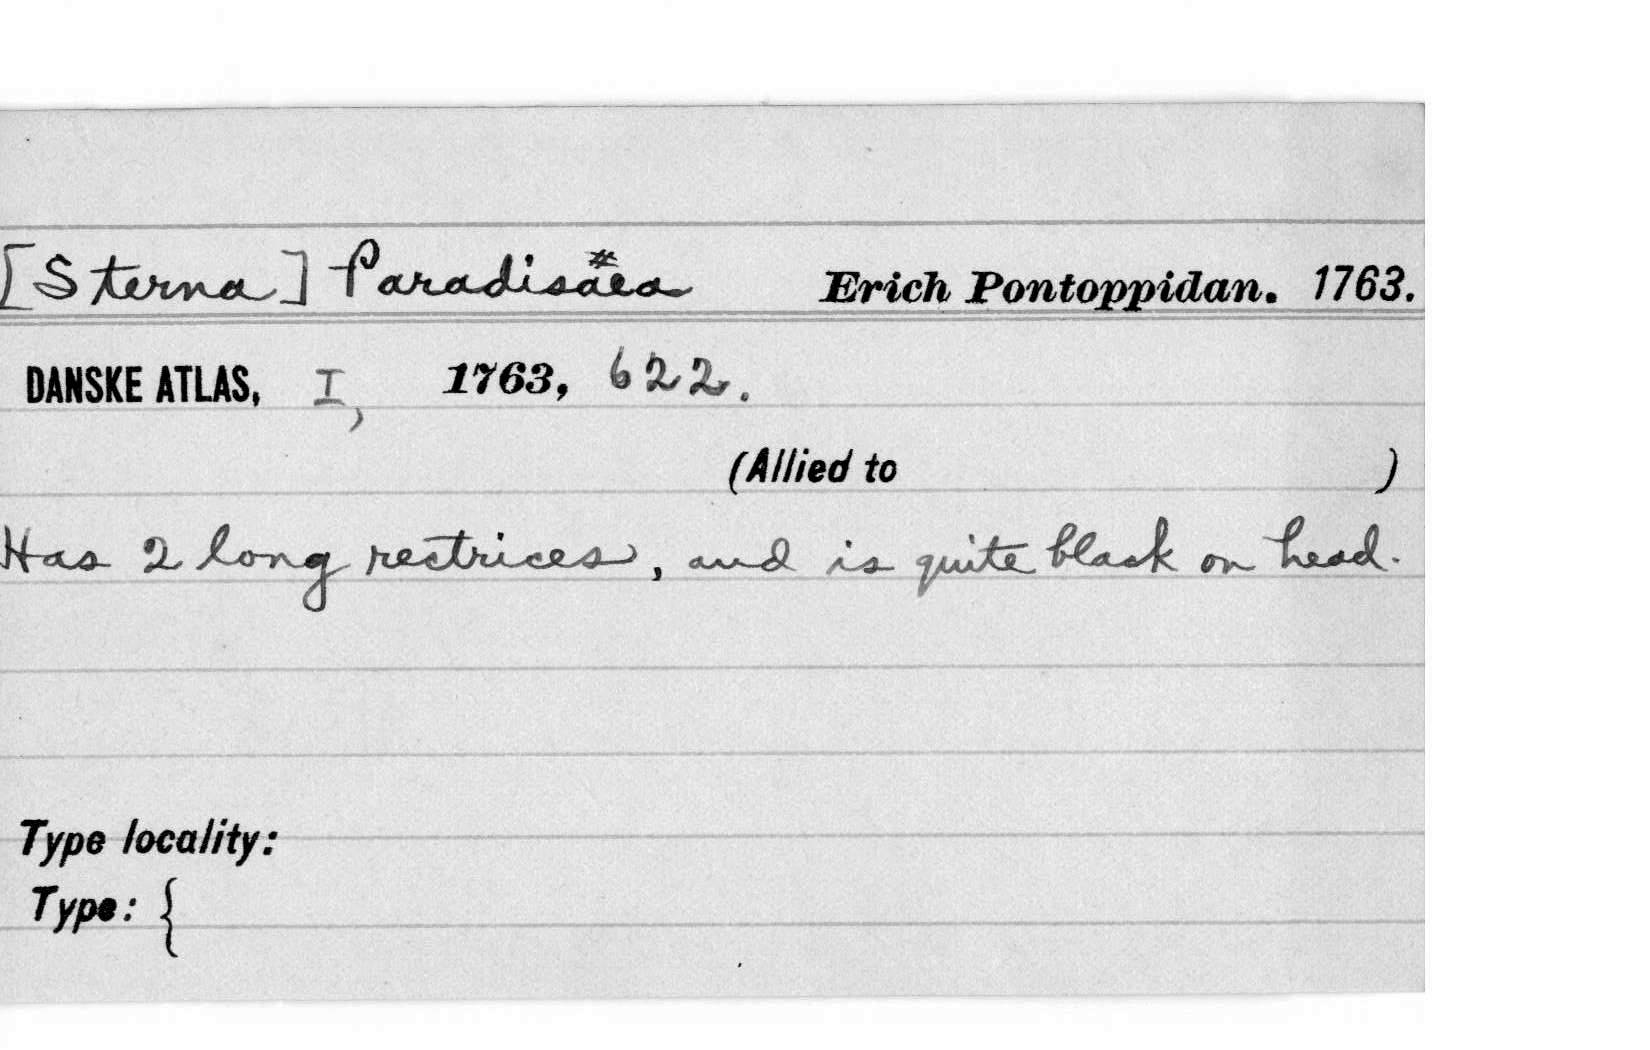 [Sterna] Paradisaea Erich Pontoppidan. 1763.
DANSKE ATLAS, I, 1763, 622.
(Allied to )
Has 2 long rectrices, and is quite black on head.
Type locality:
Type: {